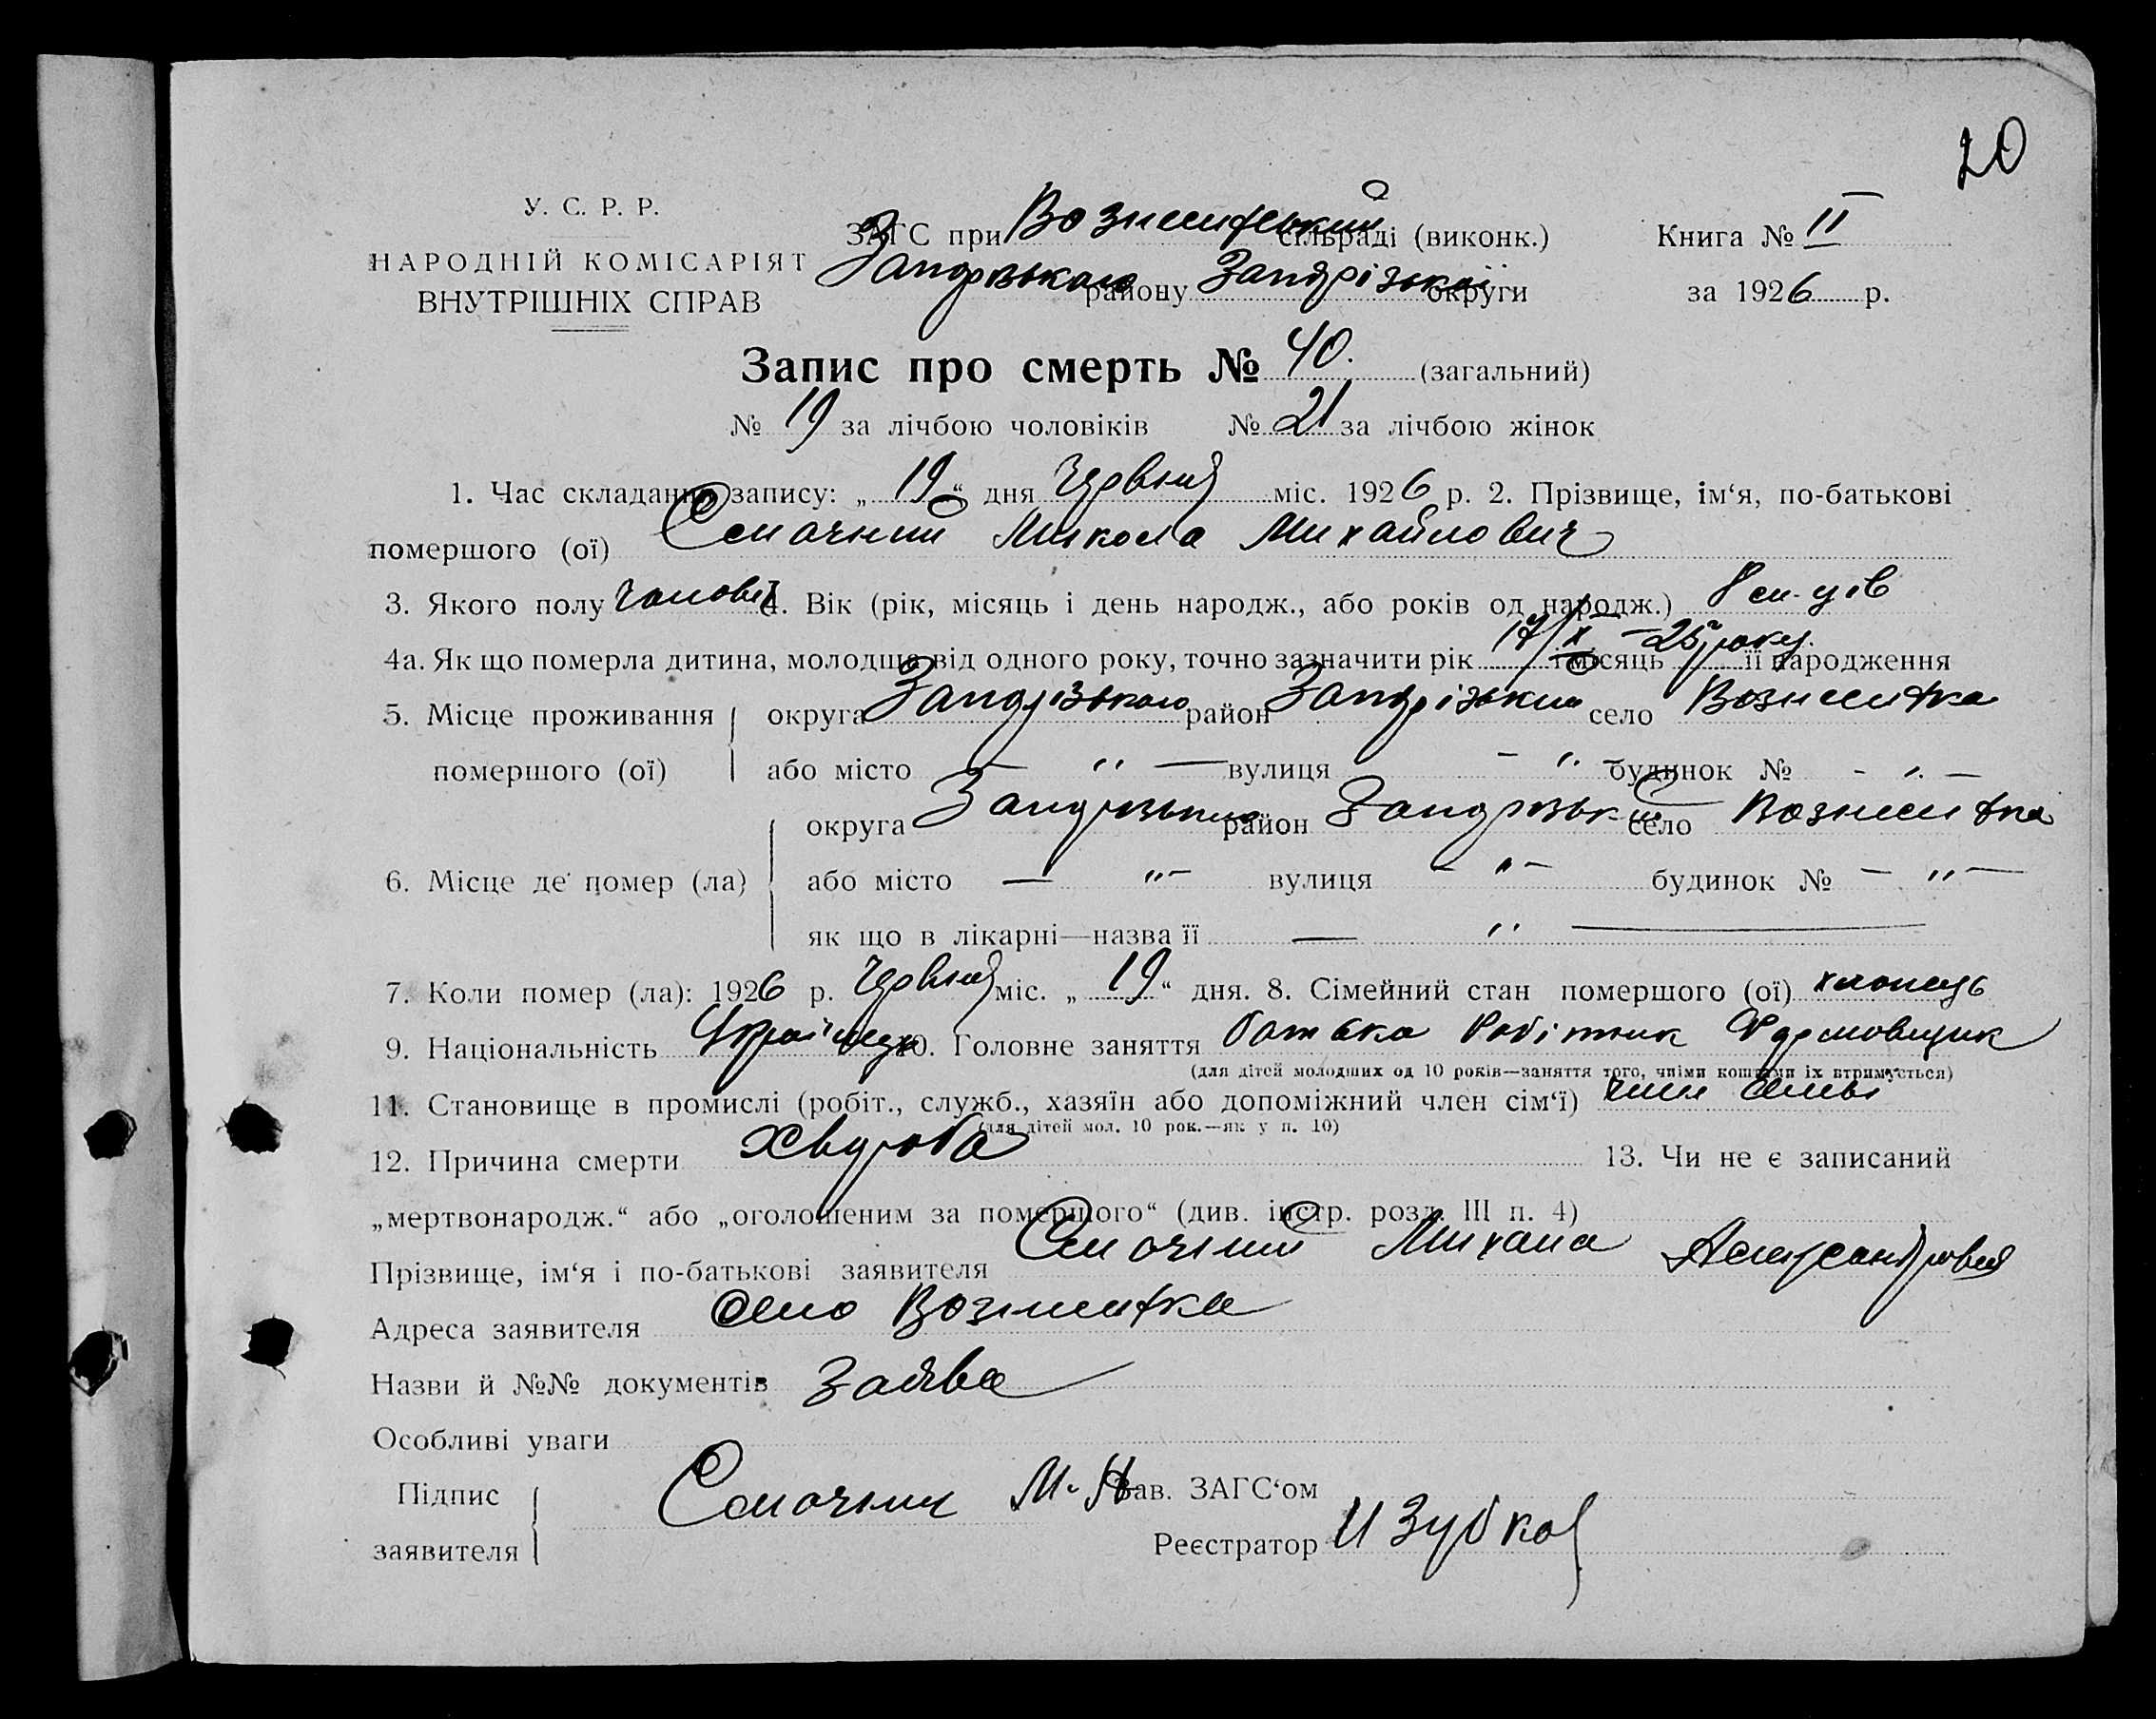 20
У. С. Р. Р.
НАРОДНІЙ КОМІСАРІЯТ
ВНУТРІШНІХ СПРАВ
ЗАГС при сільраді (виконк.) Книга № II
району округи за 1926 р.
Запис про смерть № 40. (загальний)
№ 19 за лічбою чоловіків № 21 за лічбою жінок
1. Час складання запису: „ 19 “ дня Червня міс. 1926 р. 2. Прізвище, ім‘я, по-батькові
помершого (ої) Микола Михайлович
3. Якого полу 4. Вік (рік, місяць і день народж., або років од народж.) 8 м-ців
4а. Як що померла дитина, молодша від одного року, точно зазначити рік 17/X – 25 року. і місяць її народження
5. Місце проживання округа район село Вознесенка
помершого (ої) або місто — „ — вулиця - „ - будинок № - „ —
округа район село Вознесенка
6. Місце де помер (ла) або місто — „ - вулиця - „ - будинок № - „ —
як що в лікарні—назва її — „ —
7. Коли помер (ла): 1926 р. Червня міс. „ 19 “ дня. 8. Сімейний стан помершого (ої) хлопець
9. Національність Українець 10. Головне заняття батька Робітник Формовщик
(для дітей молодших од 10 років—заняття того, чиїми коштами їх втримується)
11. Становище в промислі (робіт., служб., хазяїн або допоміжний член сім‘ї) член
(для дітей мол. 10 рок.—як у п. 10)
12. Причина смерти Хвороба 13. Чи не є записаний
„мертвонародж.“ або „оголошеним за помершого“ (див. інстр. розд. III п. 4)
Прізвище, ім‘я і по-батькові заявителя Михаил
Адреса заявителя село Вознесенка
Назви й №№ документів Заява
Особливі уваги
Підпис Зав. ЗАГС‘ом
заявителя Реєстратор И Зубков